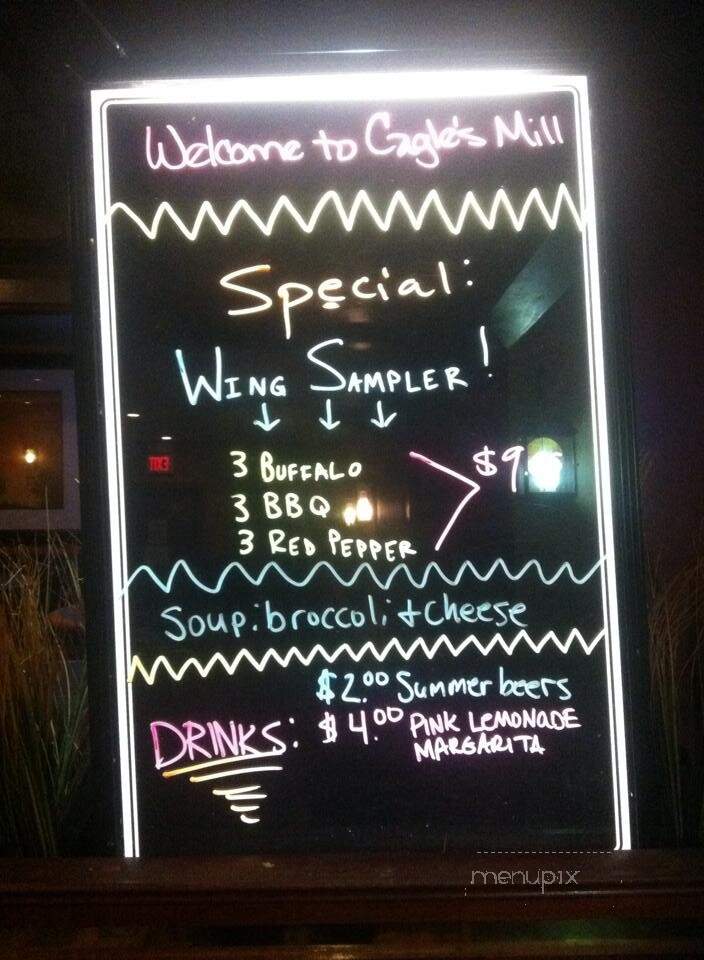 Welcome to Cagle's Mill
Special:
WING SAMPLER!
3 BUFFALO
3 BBQ
3 RED PEPPER
$9
Soup: broccoli + cheese
$2.00 Summer beers
DRINKS: $4.00 PINK LEMONADE
MARGARITA
menupix